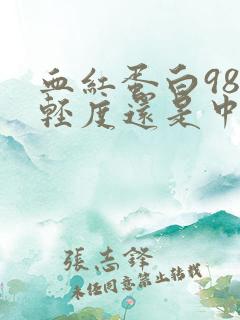 血紅蛋白98
輕度還是中
張志鋒
未经同意禁止转载